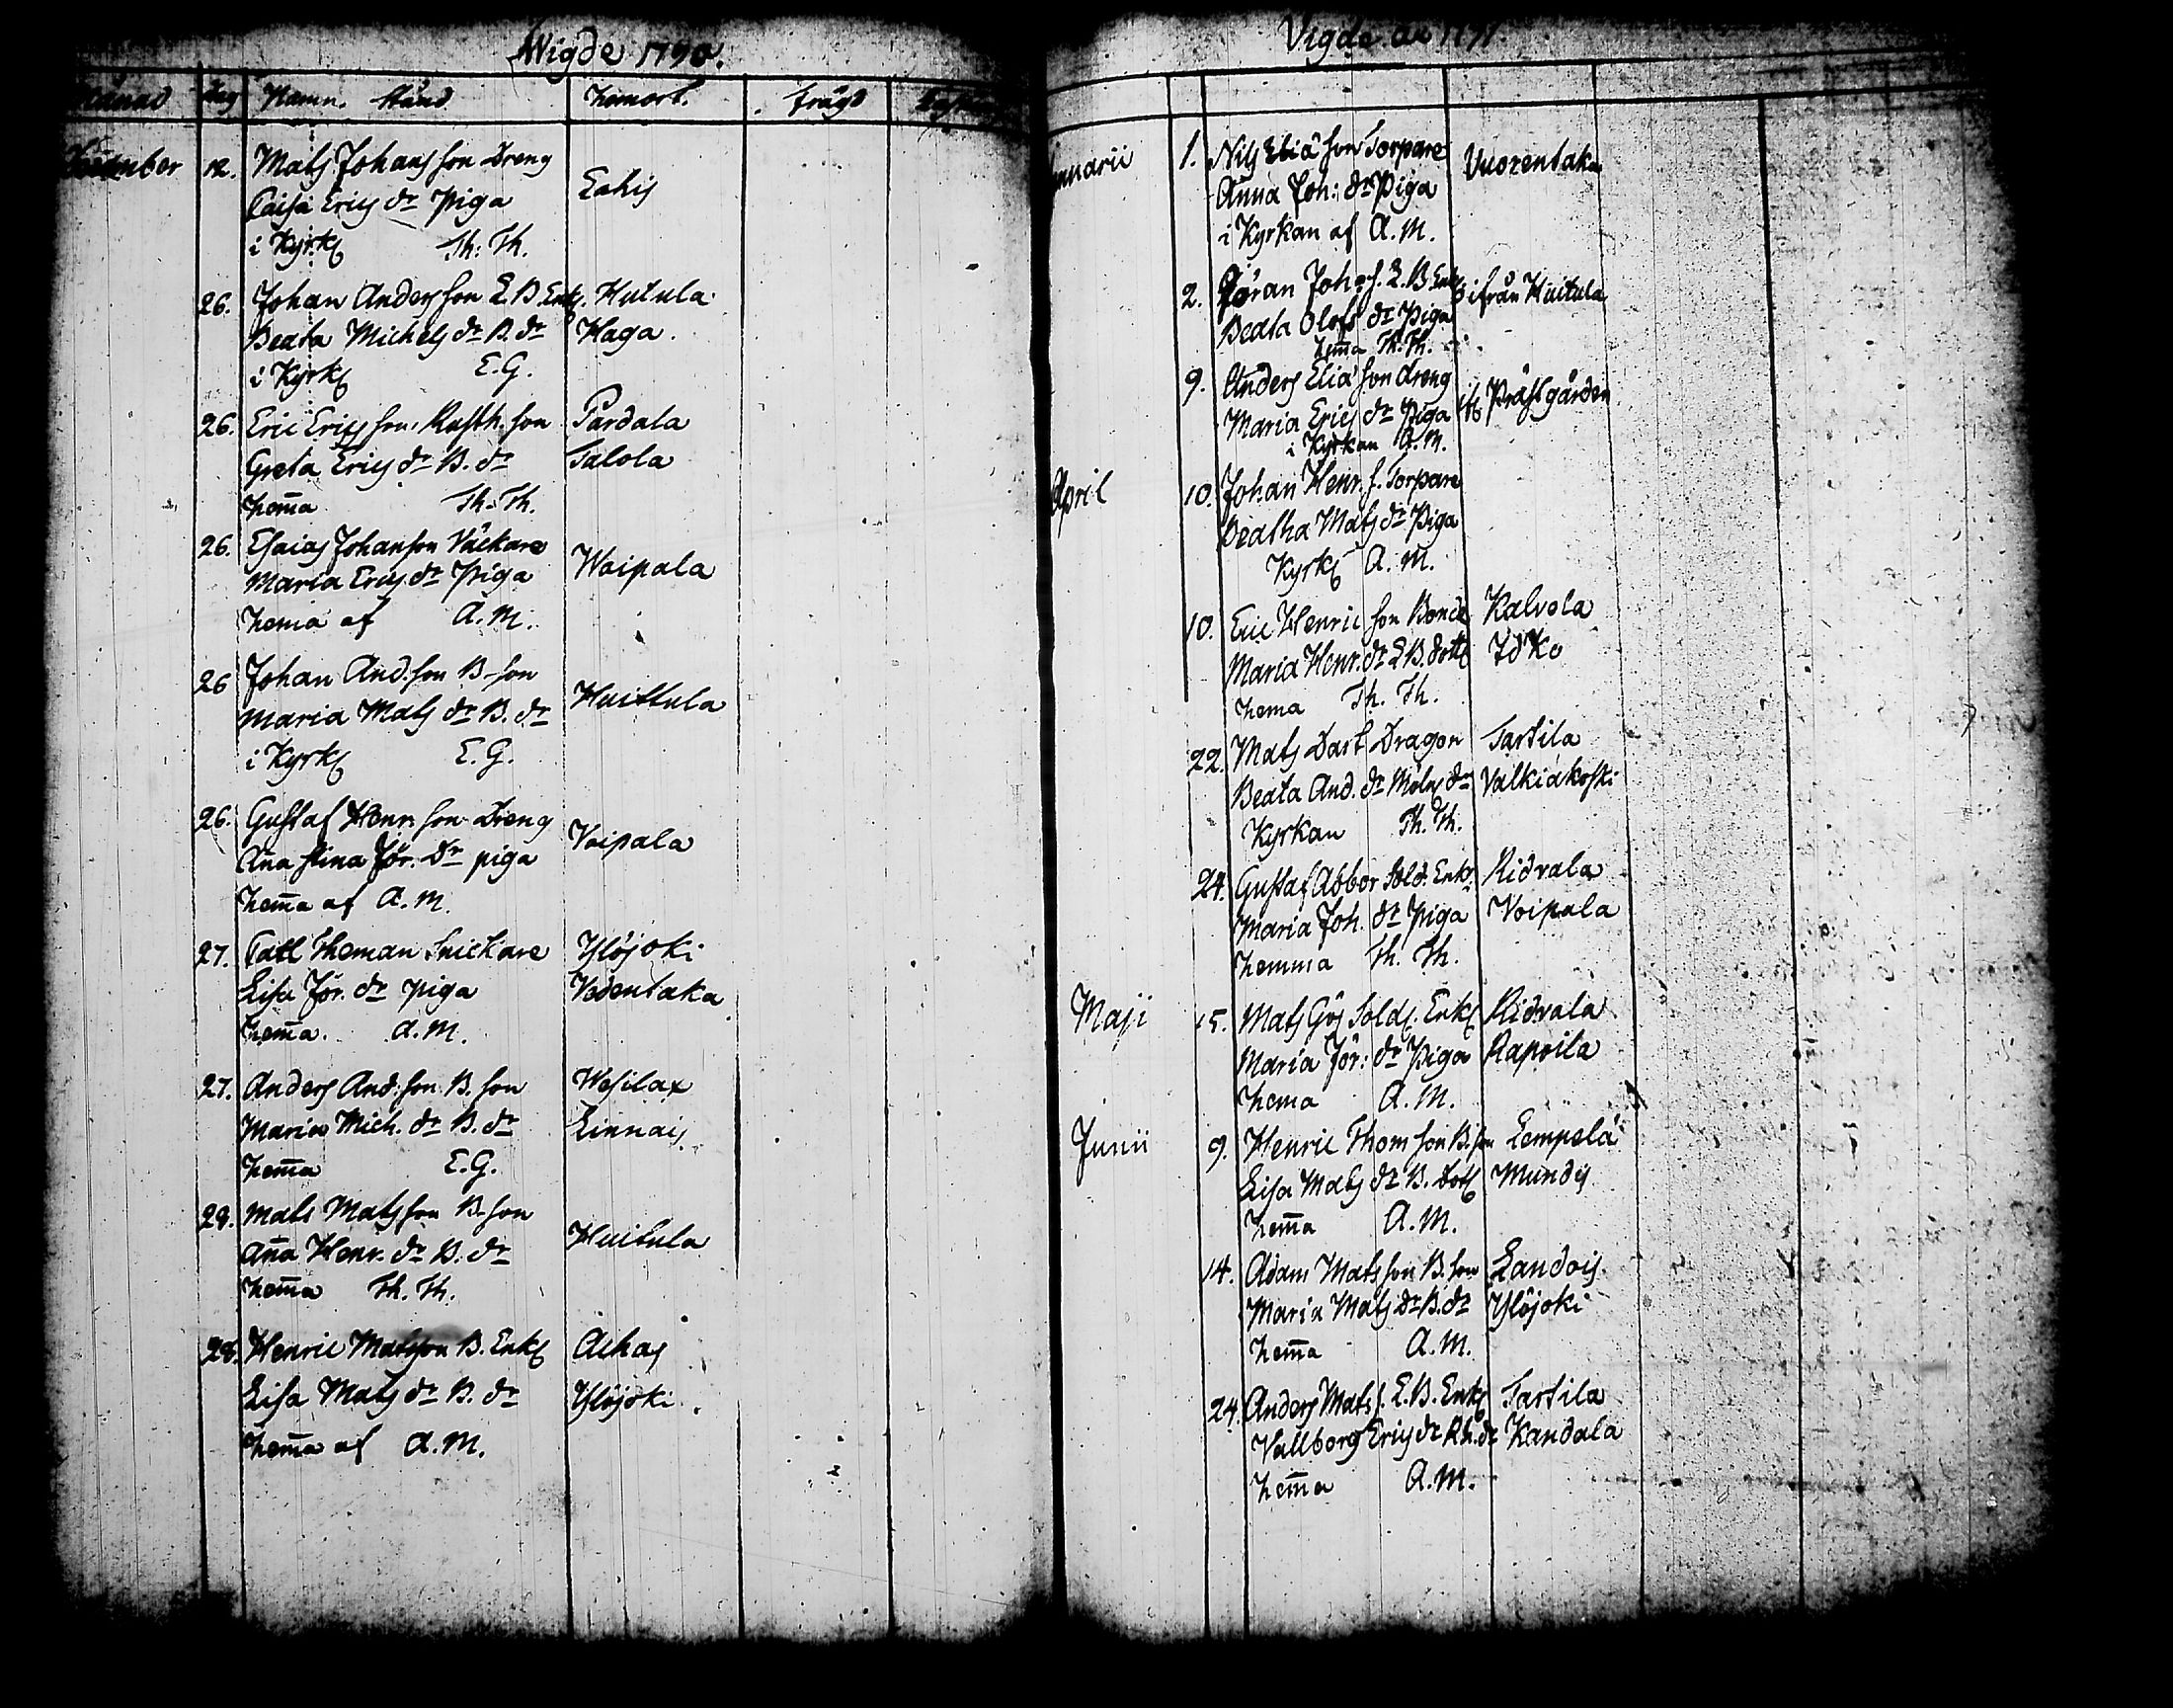 Wigde 1790.
Månad Dag Namn. Stånd hemort. frägd
December 12. Mats Johansson Dreng
Caisa Erics dr Piga Eahis
i Kyrk Th: Th.
26. Johan Andersson L. B. Enk. Hutula
Beata Michels dr B. dr Haga.
i Kyrk E. G.
26. Eric Ericsson, Rusth. son Pardala
Greta Erics dr B. dr Talola
hem̄a Th. Th.
26. Esaias Johanson Väckare
Maria Erics dr Piga Woipala
hema af A. M.
26 Johan And. son B-son
Maria Mats dr B. dr Huittula
i Kyrk E. G.
26. Gustaf Henr. son Dreng
Aña Stina Jör. Dr piga Voipala
hem̄a af A. M.
27. Carl Theman Snickare Ylöjoki
Lisa Jör. dr piga Vedentaka
hem̄a. A. M.
27. Anders And: son B. son Wesilax
Maria Mich. dr B. dr Linnais
hem̄a E. G.
28. Mats Matsson B-son
Aña Henr. dr B. dr Huitula
hem̄a Th. Th.
28. Henric Matsson B. Enk Achas
Lisa Mats dr B. dr Ylöjoki.
hem̄a af A. M.
Vigde år 1791.
Januarii 1. Nils Eliä son Torpare Vuorentaka
Anna Joh: dr Piga
i Kyrkan af A. M.
2. Göran Joh. s. L. B Enk ifrån Huitula
Beata Olofs dr Piga
hem̄a Th. Th.
9. Anders Eliä son dreng
Maria Erics dr Piga Prästgården
i Kyrkan A. M.
April 10. Johan Henr. s. Torpare
Beatha Mats dr Piga
Kyrk A. M.
10. Eric Henric son Bonde Kalvola
Maria Henr. dr L B. dott
hema Th. Th.
22. Mats Dart Dragon Tarttila
Beata And. dr Möln dr Valkiakoski
Kyrkan Th. Th.
24. Gustaf Abbor Sold. Enk. Ridvala
Maria Joh. dr Piga Voipala
hemma Th. Th.
Maji 15. Mats Gös Sold. Enk Ridvala
Maria Jör: dr Piga Rapoila
hema A. M.
Junii 9. Henric Thom son B. son Lempelä
Lisa Mats dr B. Dott Mundis
hem̄a A. M.
14. Adam Mats son B. son Landois
Maria Mats Dr B. dr Ylöjoki
hem̄a A. M.
24 Anders Mats s. L. B. Enk Tartila
Vallborg Erics dr Rh. dr Kandala
hem̄a A. M.